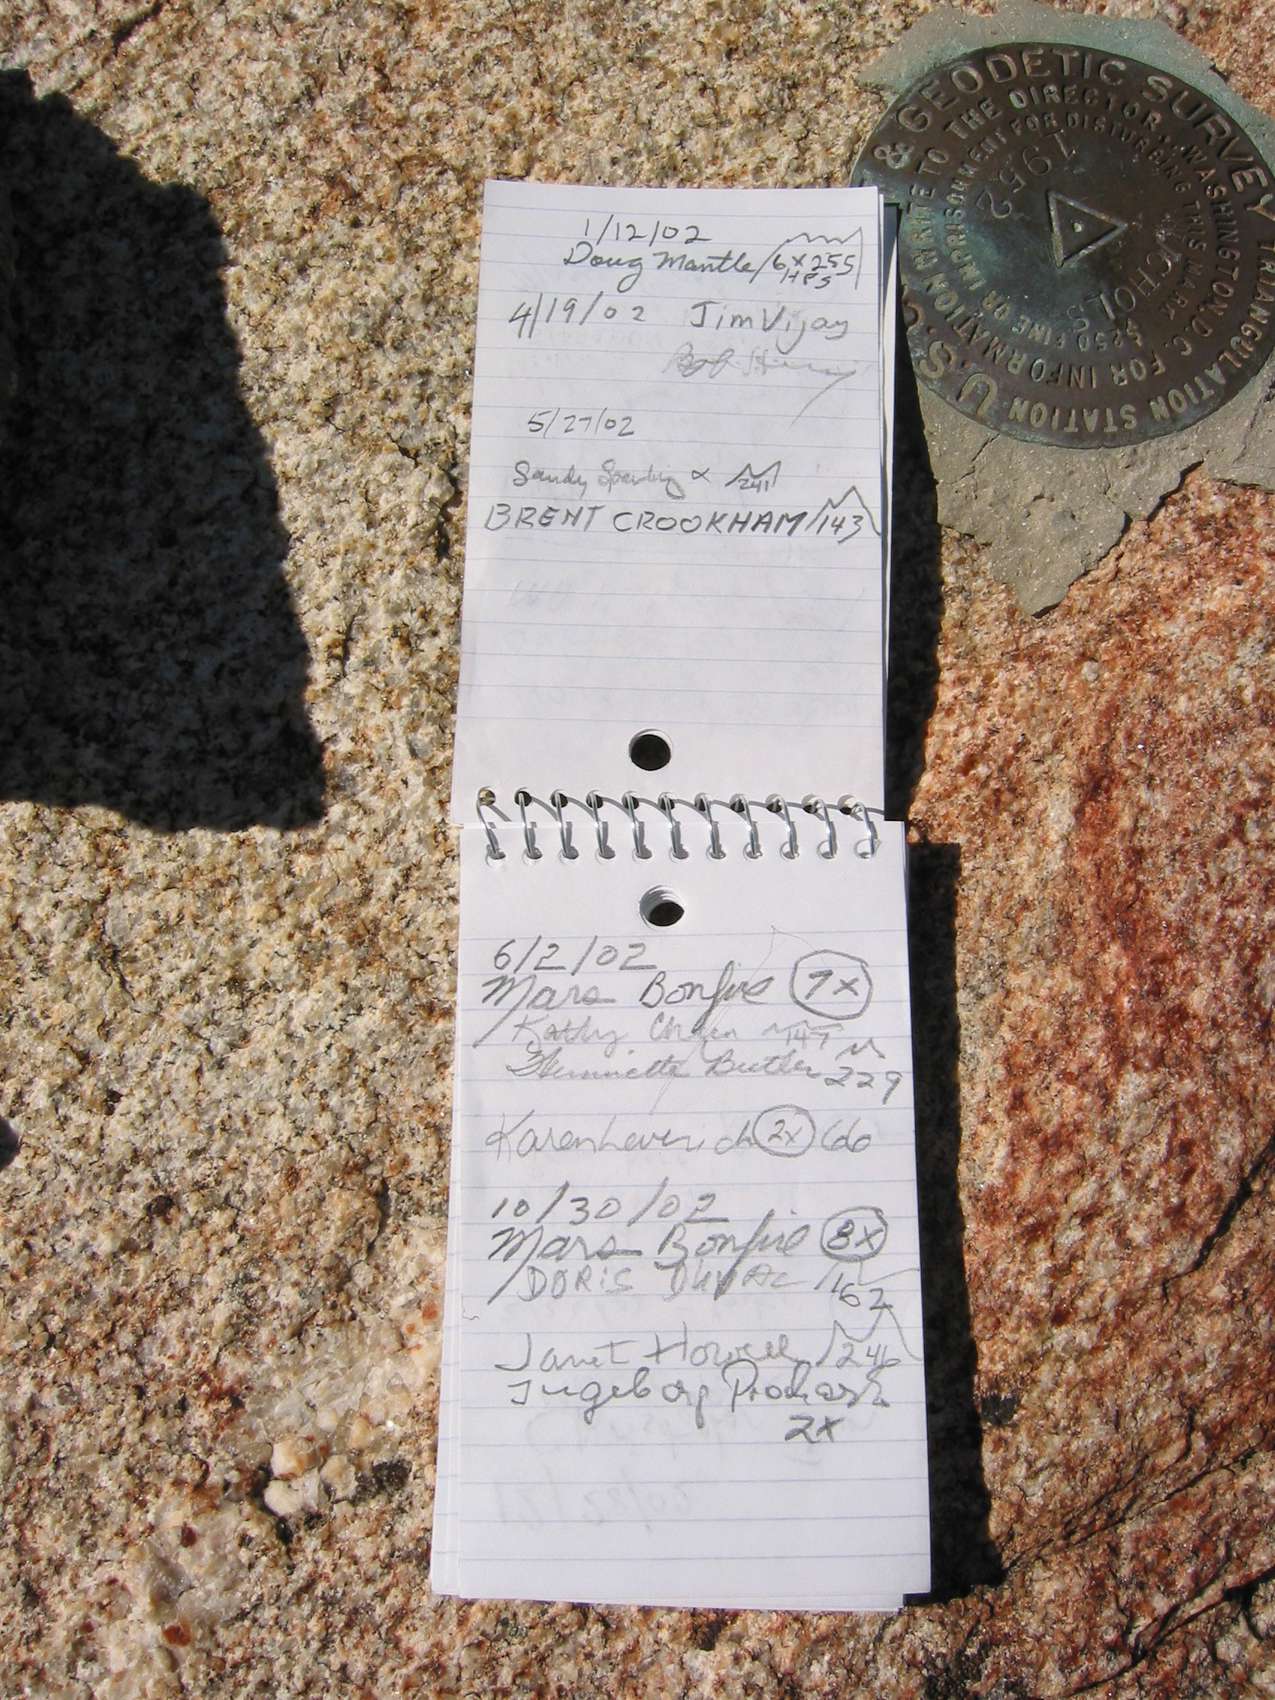 1/12/02
Doug Mantle 6x255
HPS
4/19/02 Jim Vijay
Bob
5/27/02
Sandy 241
BRENT CROOKHAM 143
6/2/02
Mars Bonfire 7x
Kathy 147
Henriette Butler 229
Karen Leverich 2x 66
10/30/02
Mars Bonfire 8x
DORIS DUVAL 162
Janet Howell 246
Ingeborg Prochazka
2x
U.S.C. & GEODETIC SURVEY TRIANGULATION STATION
FOR INFORMATION WRITE TO THE DIRECTOR, WASHINGTON, D.C.
$250 FINE OR IMPRISONMENT FOR DISTURBING THIS MARK
1952